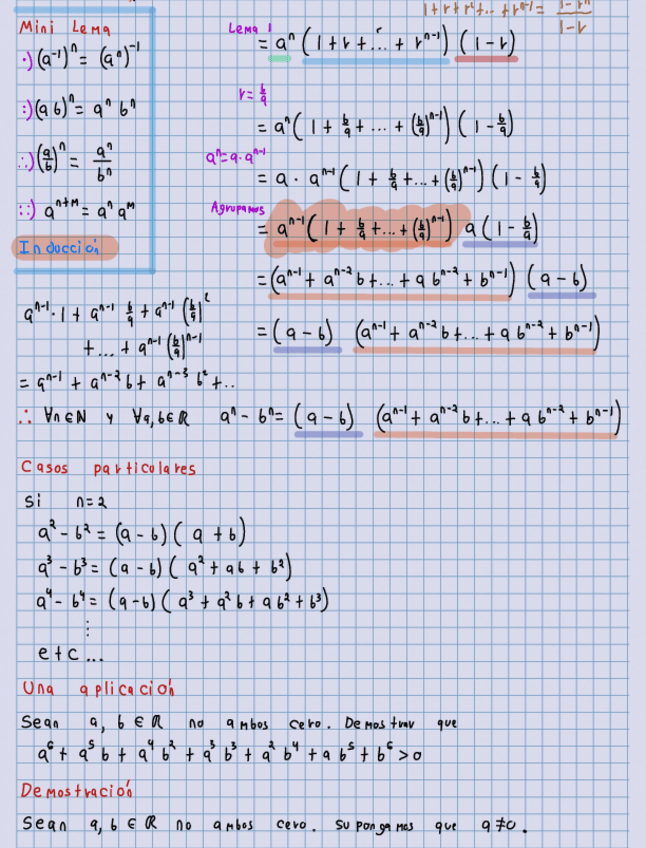 1+r+r²+...+rⁿ⁻¹ = (1-rⁿ)/(1-r)
Mini Lema
·) (a⁻¹)ⁿ = (aⁿ)⁻¹
:) (ab)ⁿ = aⁿ bⁿ
∴) (a/b)ⁿ = aⁿ/bⁿ
::) aⁿ⁺ᵐ = aⁿ aᵐ
Inducción
Lema 1
= aⁿ (1 + r + ... + rⁿ⁻¹) (1 - r)
r = b/a
= aⁿ (1 + b/a + ... + (b/a)ⁿ⁻¹) (1 - b/a)
aⁿ = a·aⁿ⁻¹
= a · aⁿ⁻¹ (1 + b/a + ... + (b/a)ⁿ⁻¹) (1 - b/a)
Agrupamos
= aⁿ⁻¹ (1 + b/a + ... + (b/a)ⁿ⁻¹) a (1 - b/a)
= (aⁿ⁻¹ + aⁿ⁻² b + ... + a bⁿ⁻² + bⁿ⁻¹) (a - b)
= (a - b) (aⁿ⁻¹ + aⁿ⁻² b + ... + a bⁿ⁻² + bⁿ⁻¹)
aⁿ⁻¹·1 + aⁿ⁻¹ b/a + aⁿ⁻¹ (b/a)²
+ ... + aⁿ⁻¹ (b/a)ⁿ⁻¹
= aⁿ⁻¹ + aⁿ⁻² b + aⁿ⁻³ b² + ..
∴ ∀n∈ℕ y ∀a,b∈ℝ aⁿ - bⁿ = (a - b) (aⁿ⁻¹ + aⁿ⁻² b + ... + a bⁿ⁻² + bⁿ⁻¹)
Casos particulares
Si n=2
a² - b² = (a - b) (a + b)
a³ - b³ = (a - b) (a² + ab + b²)
a⁴ - b⁴ = (a - b) (a³ + a² b + a b² + b³)
⋮
etc...
Una aplicación
Sean a, b ∈ ℝ no ambos cero. Demostrar que
a⁶ + a⁵ b + a⁴ b² + a³ b³ + a² b⁴ + a b⁵ + b⁶ > 0
Demostración
Sean a, b ∈ ℝ no ambos cero. Supongamos que a ≠ 0.